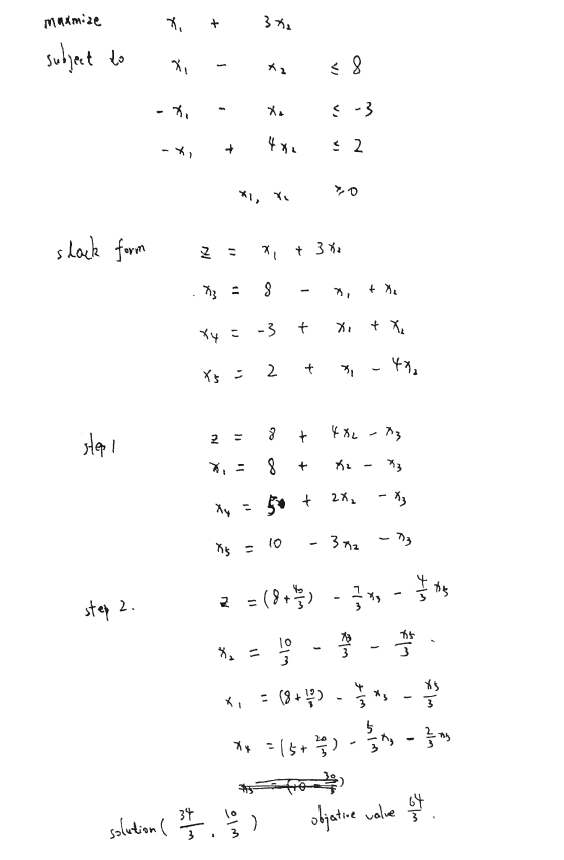 maximize x₁ + 3x₂
subject to x₁ - x₂ ≤ 8
-x₁ - x₂ ≤ -3
-x₁ + 4x₂ ≤ 2
x₁, x₂ ≥ 0
slack form z = x₁ + 3x₂
x₃ = 8 - x₁ + x₂
x₄ = -3 + x₁ + x₂
x₅ = 2 + x₁ - 4x₂
step 1 z = 8 + 4x₂ - x₃
x₁ = 8 + x₂ - x₃
x₄ = 5 + 2x₂ - x₃
x₅ = 10 - 3x₂ - x₃
step 2. z = (8+40/3) - 7/3 x₃ - 4/3 x₅
x₂ = 10/3 - x₃/3 - x₅/3
x₁ = (8+10/3) - 4/3 x₃ - x₅/3
x₄ = (5+20/3) - 5/3 x₃ - 2/3 x₅
solution (34/3, 10/3) objative value 64/3.